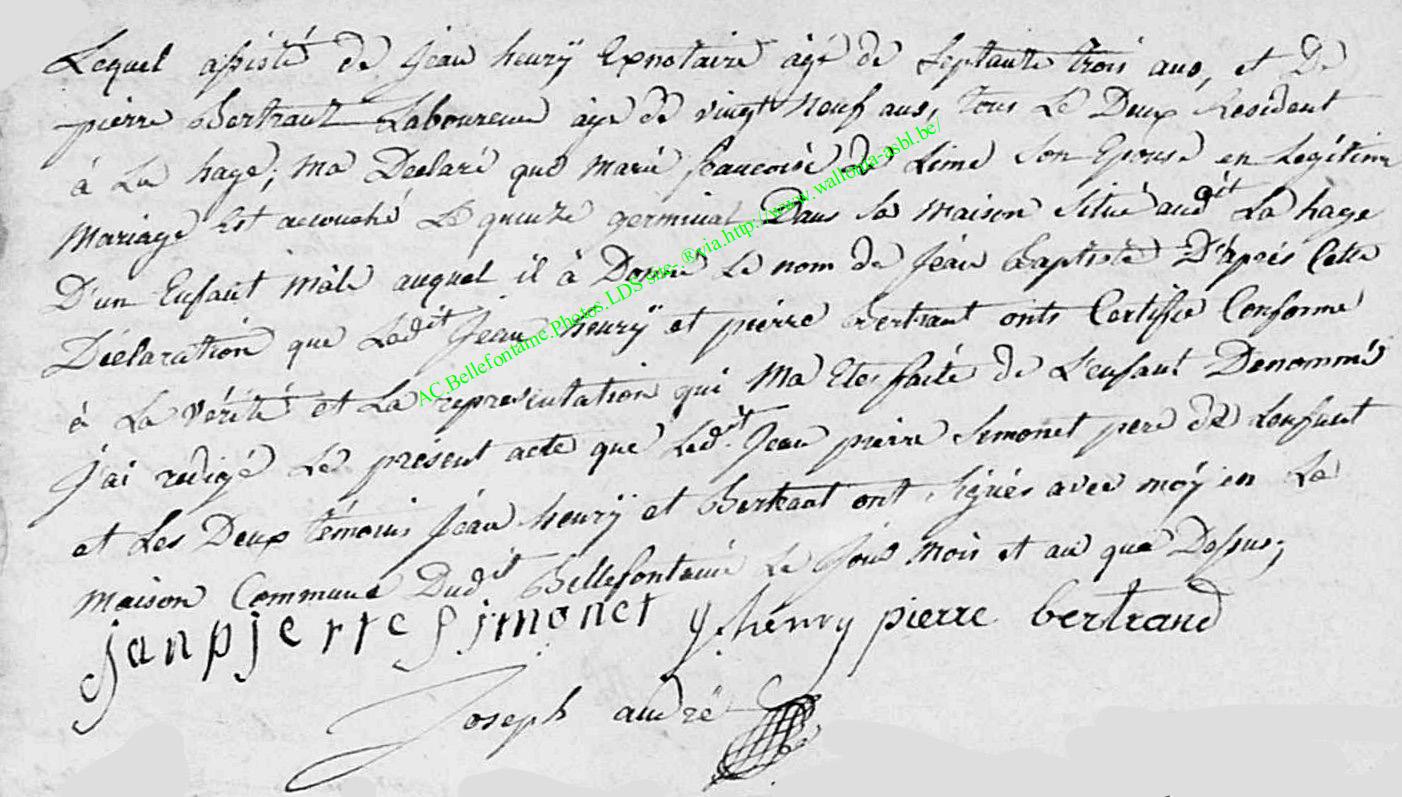 Lequel assisté de Jean henrÿ Exnotaire agé de Septante trois ans, et De
pierre Bertrant Laboureur age de vingt neuf ans, tous Le Deux Resident
à La hage; Ma Declaré que Marie francoise de Lime Son Epouse en Legitime
Mariage Est accouché Le quinze germinal Dans sa Maison Situé audit La hage
D'un Enfant Mâle auquel il à Donné Le nom de Jéan Baptiste D'aprés Cette
Déclaration que Ledit Jean henrÿ et pierre Bertrant onts Certifié Conforme
à La vérité et La representation qui Ma Etes faite de L'enfant Denommé
J'ai redigé Le présent acte que Ledit Jean pierre Simonet pere de Lenfant
et Les Deux témouis Jéan henrÿ et Bertrant ont signés avec moÿ en La
Maison Commune Dudit Bellefontaine Le Jour Mois et an que Dessus;
janpjerre Sjmonet J henry pierre bertrand
Joseph andré
AC.Bellefontaine.Photos.LDS site. ®via.http://www.wallonia-asbl.be/